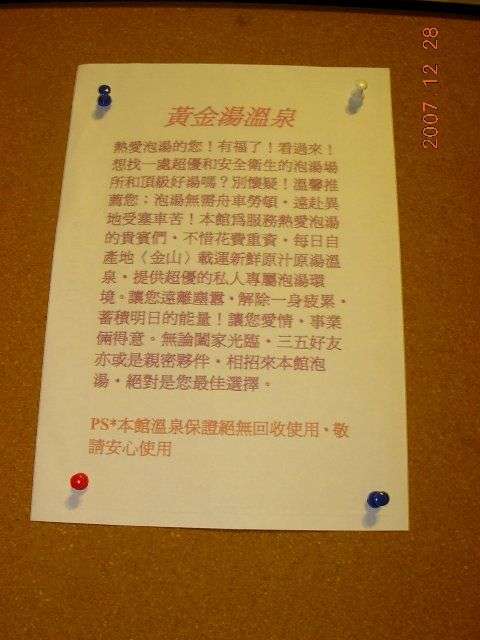 2007 12 28
黃金湯溫泉
熱愛泡湯的您！有福了！看過來！
想找一處超優和安全衛生的泡湯場
所和頂級好湯嗎？別懷疑！溫馨推
薦您；泡湯無需舟車勞頓，遠赴異
地受塞車苦！本館為服務熱愛泡湯
的貴賓們，不惜花費重資，每日自
產地〈金山〉載運新鮮原汁原湯溫
泉，提供超優的私人專屬泡湯環
境。讓您遠離塵囂，解除一身疲累，
蓄積明日的能量！讓您愛情，事業
倆得意。無論闔家光臨，三五好友
亦或是親密夥伴，相招來本館泡
湯，絕對是您最佳選擇。
PS*本館溫泉保證絕無回收使用、敬
請安心使用